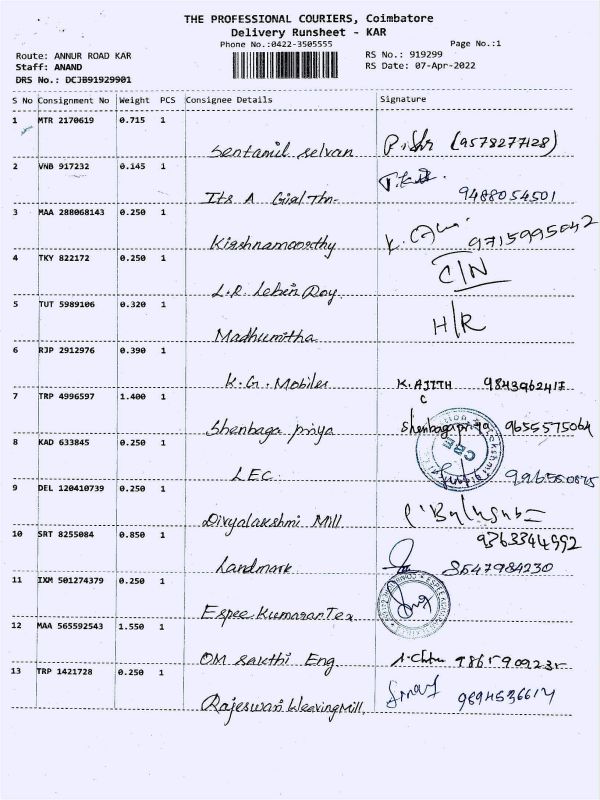 THE PROFESSIONAL COURIERS, Coimbatore
Delivery Runsheet - KAR
Phone No.:0422-3505555 Page No.:1
Route: ANNUR ROAD KAR RS No.: 919299
Staff: ANAND RS Date: 07-Apr-2022
DRS No.: DCJB91929901
S No Consignment No Weight PCS Consignee Details Signature
1 MTR 2170619 0.715 1
Sentamil selvan (9578277128)
2 VNB 917232 0.145 1
Its A Girl Thn- 9488054501
3 MAA 288068143 0.250 1
Krishnamoorthy K. 9715995042
4 TKY 822172 0.250 1
L.R. Leben Roy C/N
5 TUT 5989106 0.320 1
Madhumitha H/R
6 RJP 2912976 0.390 1
K.G. Mobiles K. AJITH 9843962417
7 TRP 4996597 1.400 1 C
Shenbaga priya Shenbagapriya 9655575064
8 KAD 633845 0.250 1
LEC CBE
9 DEL 120410739 0.250 1
Divyalakshmi Mill
10 SRT 8255084 0.850 1 9363344992
Landmark 8547984230
11 IXM 501274379 0.250 1
Espee Kumaran Tex
12 MAA 565592543 1.550 1
OM Sakthi Eng
13 TRP 1421728 0.250 1
Rajeswari Weaving Mill 9694536617